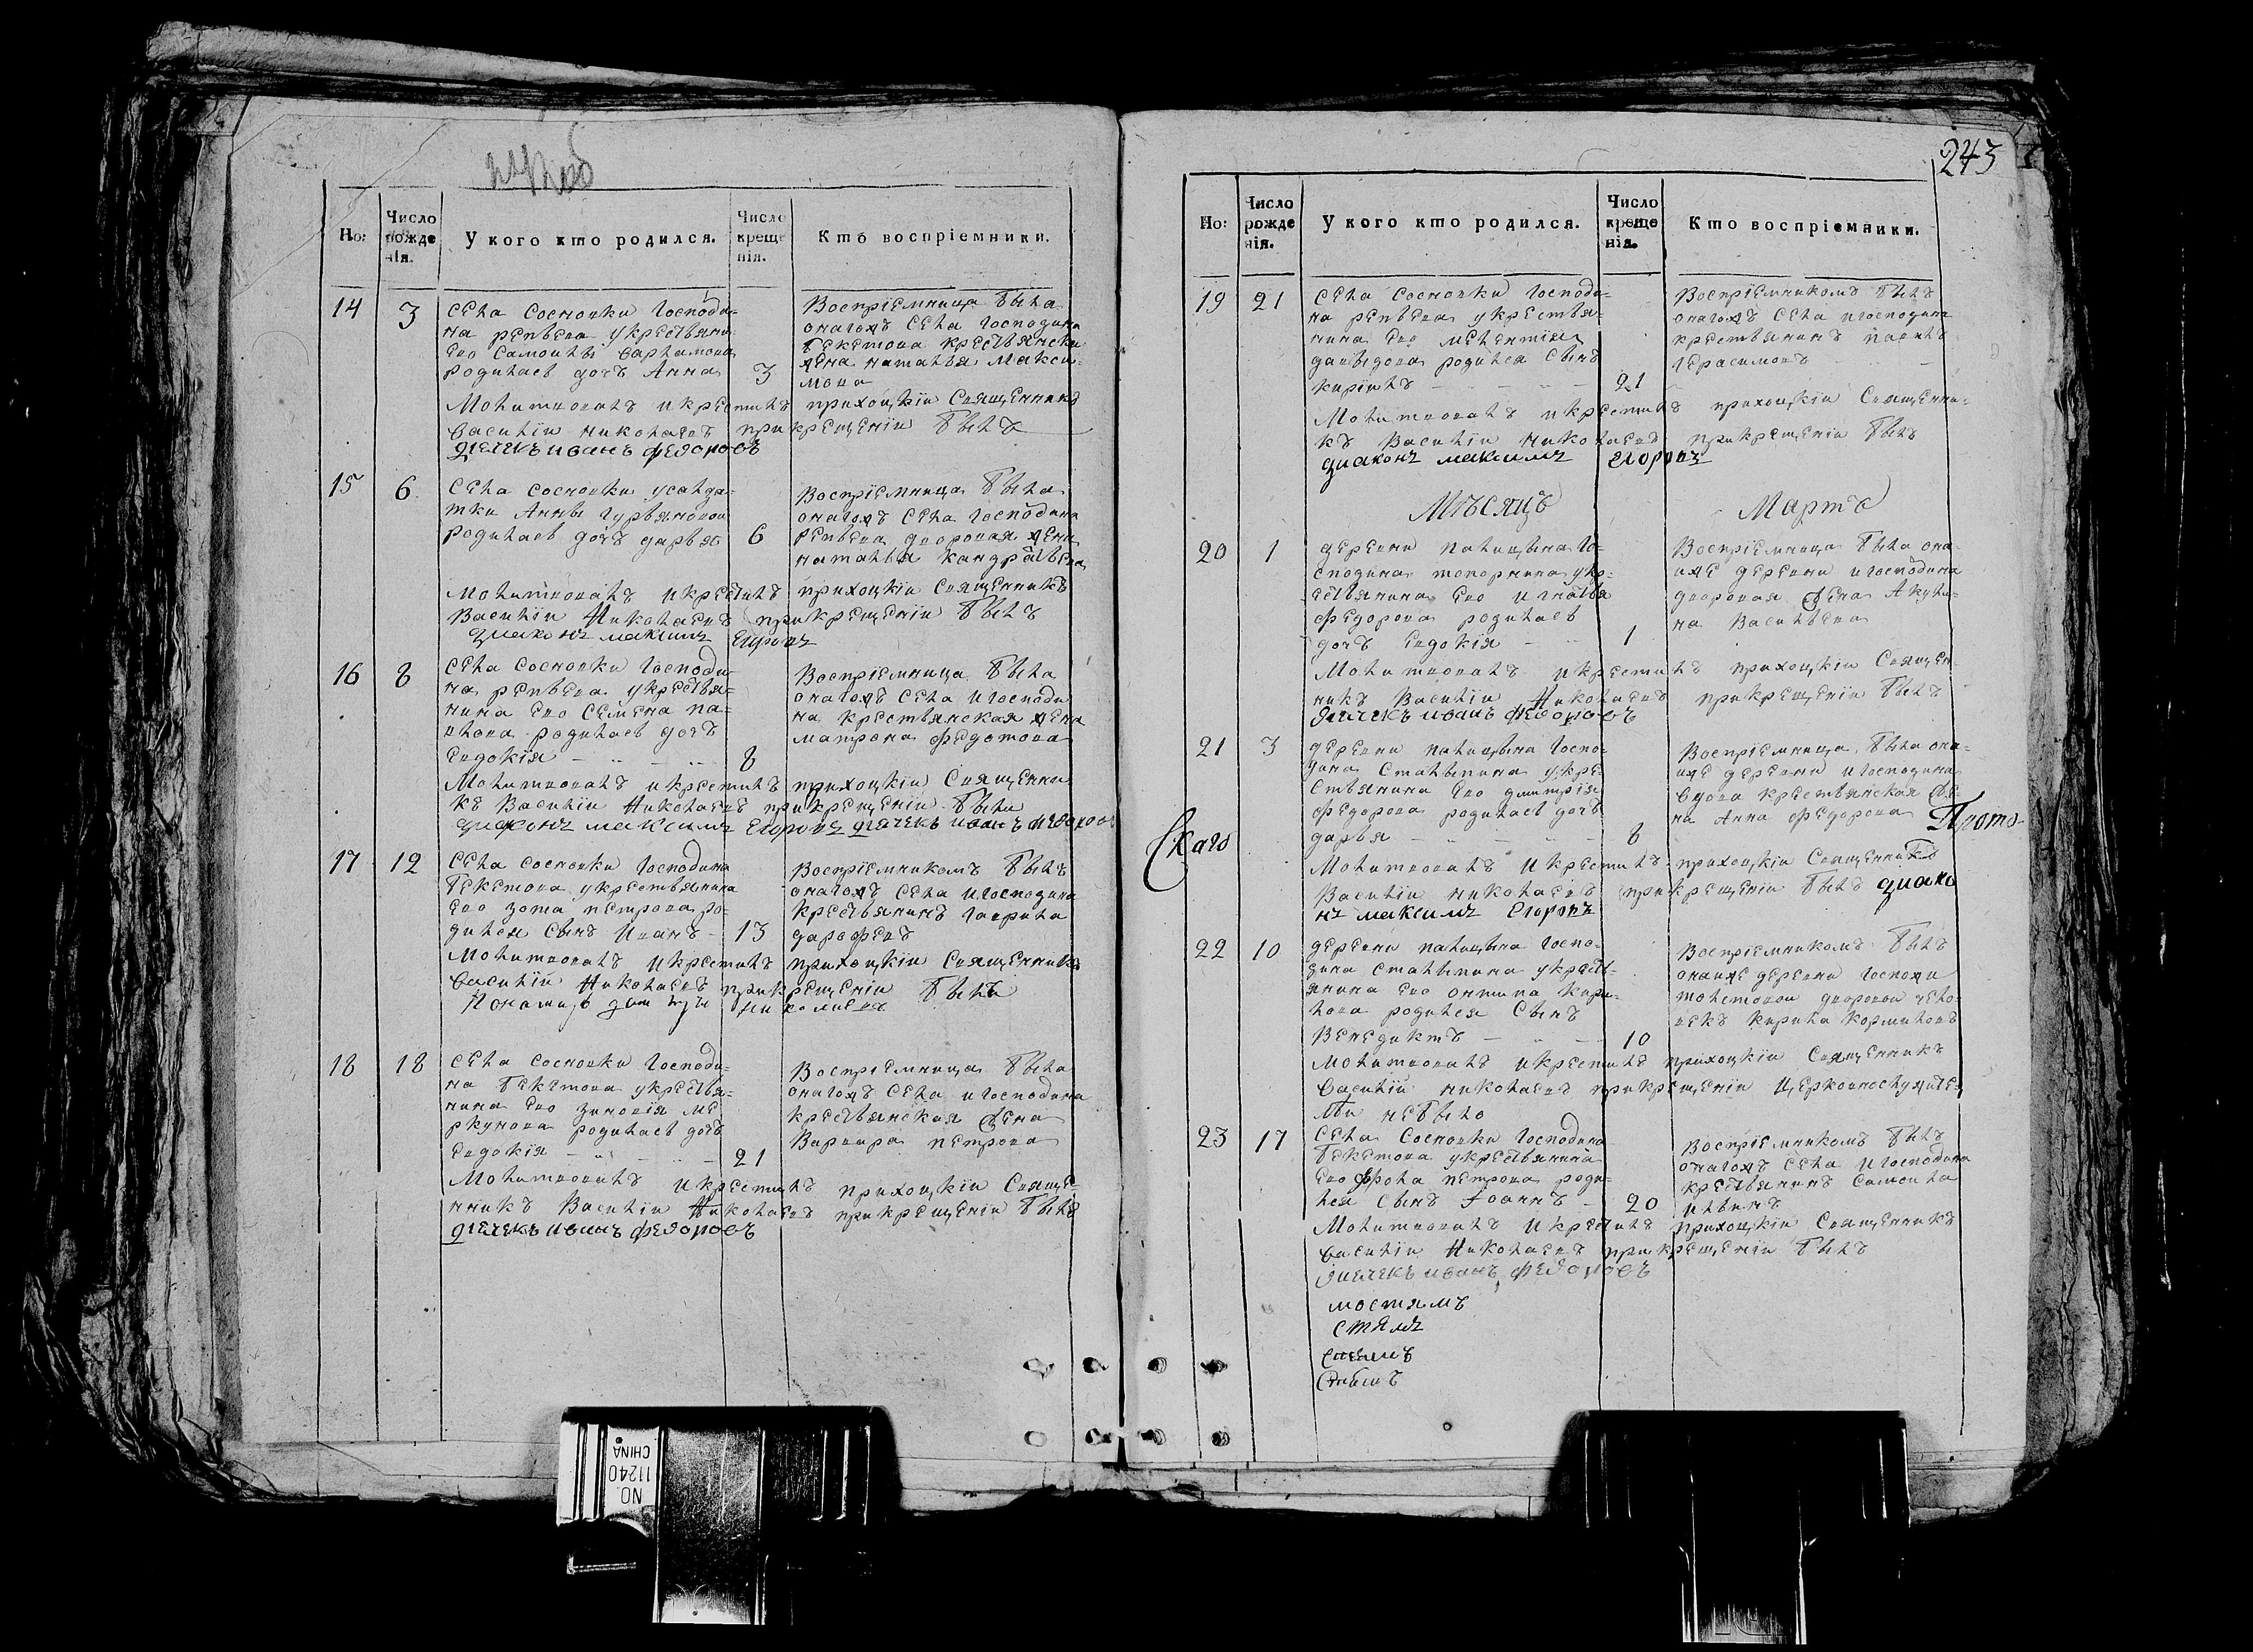 243
Но:
Число рожде нія.
У кого кто родился.
Число креще нія.
Кто воспріемники.
14
3
Села Сосновки Господи-
на репьева у крестьяни
его Самоилы вархамова
родилась дочь Анна
3
Воспріемница была
оногожъ Села Господина
бекетова крестьянска
жена наталья Макси-
мова
Молитвовалъ и крестилъ прихоцкіи Священникъ
Василіи николаевъ при крещеніи былъ
дьячекъ иванъ федоровъ
15
6
Села Сосновки усолда-
тки Анны гурьяновои
родилась дочь дарья
6
Воспріемница была
оногожъ Села Господина
репьева дворовая жена
наталья кандратьева
Молитвовалъ и крестилъ прихоцкіи Священникъ
Василіи Николаевъ при крещеніи былъ
диаконъ максимъ Егоровъ
16
8
Села Сосновки Господи
на репьева у крестья-
нина его Семена па-
влова родилась дочь
Евдокія
8
Воспріемница была
оногожъ Села и господи
на крестьянская жена
матрона федотова
Молитвовалъ и крестилъ прихоцкіи Священни
къ Василіи Николаевъ при крещеніи были
диаконъ максимъ Егоровъ дьячекъ иванъ федоровъ
17
12
Села Сосновки Господина
бекетова у крестьянина
его зота петрова ро-
дился Сынъ Иванъ
13
Воспріемникомъ былъ
оногожъ Села и господина
крестьянинъ гаврила
дарофеевъ
Молитвовалъ и крестилъ прихоцкіи Священникъ
Василіи Николаевъ при крещеніи былъ
18
18
Села Сосновки Господи-
на бекетова у крестья-
нина его зиновія ме
ркулова родилась дочь
Евдокія
21
Воспріемница была
оногожъ Села и господина
крестьянская жена
Варвара петрова
Молитвовалъ и крестилъ прихоцкіи Свяще-
нникъ Василіи Николаевъ при крещеніи былъ
дьячекъ иванъ федоровъ
Но:
Число рожде нія.
У кого кто родился.
Число креще нія.
Кто воспріемники.
19
21
Села Сосновки Господи-
на репьева у крестья-
нина его мелентія
давыдова родился Сынъ
кирилъ
21
Воспріемникомъ былъ
оногожъ Села и господина
крестьянинъ павилъ
герасимовъ
Молитвовалъ и крестилъ прихоцкіи Священни-
къ Василіи николаевъ при крещеніи былъ
диаконъ максимъ Егоровъ
Мѣсяцъ Мартъ
20
1
деревни палицына Го-
сподина топорнина у кр-
естьянина его игнатья
федорова родилась
дочь евдокія
1
Воспріемница была оно
иже деревни и господина
дворовая жена Акули-
на Васильева
Молитвовалъ и крестилъ прихоцкіи Священ
никъ Василіи Николаевъ при крещеніи былъ
дьячекъ иванъ федоровъ
21
3
деревни палицына Госпо-
дина Сталыпина у кре-
стьянина его дмитрія
федорова родилась дочь
дарья
8
Воспріемница была оно-
иже деревни и господина
вдова крестьянская же-
на Анна федорова
Прото-
Скаго
Молитвовалъ и крестилъ прихоцкіи Священникъ
Василіи николаевъ при крещеніи былъ диако
нъ максимъ Егоровъ
22
10
деревни палицына Госпо-
дина сталыпина у кресть-
янина его онтипа кири-
лова родился Сынъ
Венедиктъ
10
Воспріемникомъ былъ
оноиже деревни госпожи
толстовои дворовои чело-
векъ кирила кормиловъ
Молитвовалъ и крестилъ прихоцкіи Священникъ
Василіи николаевъ при крещеніи Церковнослужите-
ли небыло
23
17
Села Сосновки Господина
бекетова у крестьянина
его фрола петрова роди-
лся Сынъ Іоаннъ
20
Воспріемникомъ былъ
оногожъ Села и господина
крестьянинъ Самоила
ильинъ
Молитвовалъ и крестилъ прихоцкіи Священникъ
Василіи Николаевъ при крещеніи былъ
дьячекъ иванъ федоровъ
мостямъ
стямъ
NO. 11240
CHINA